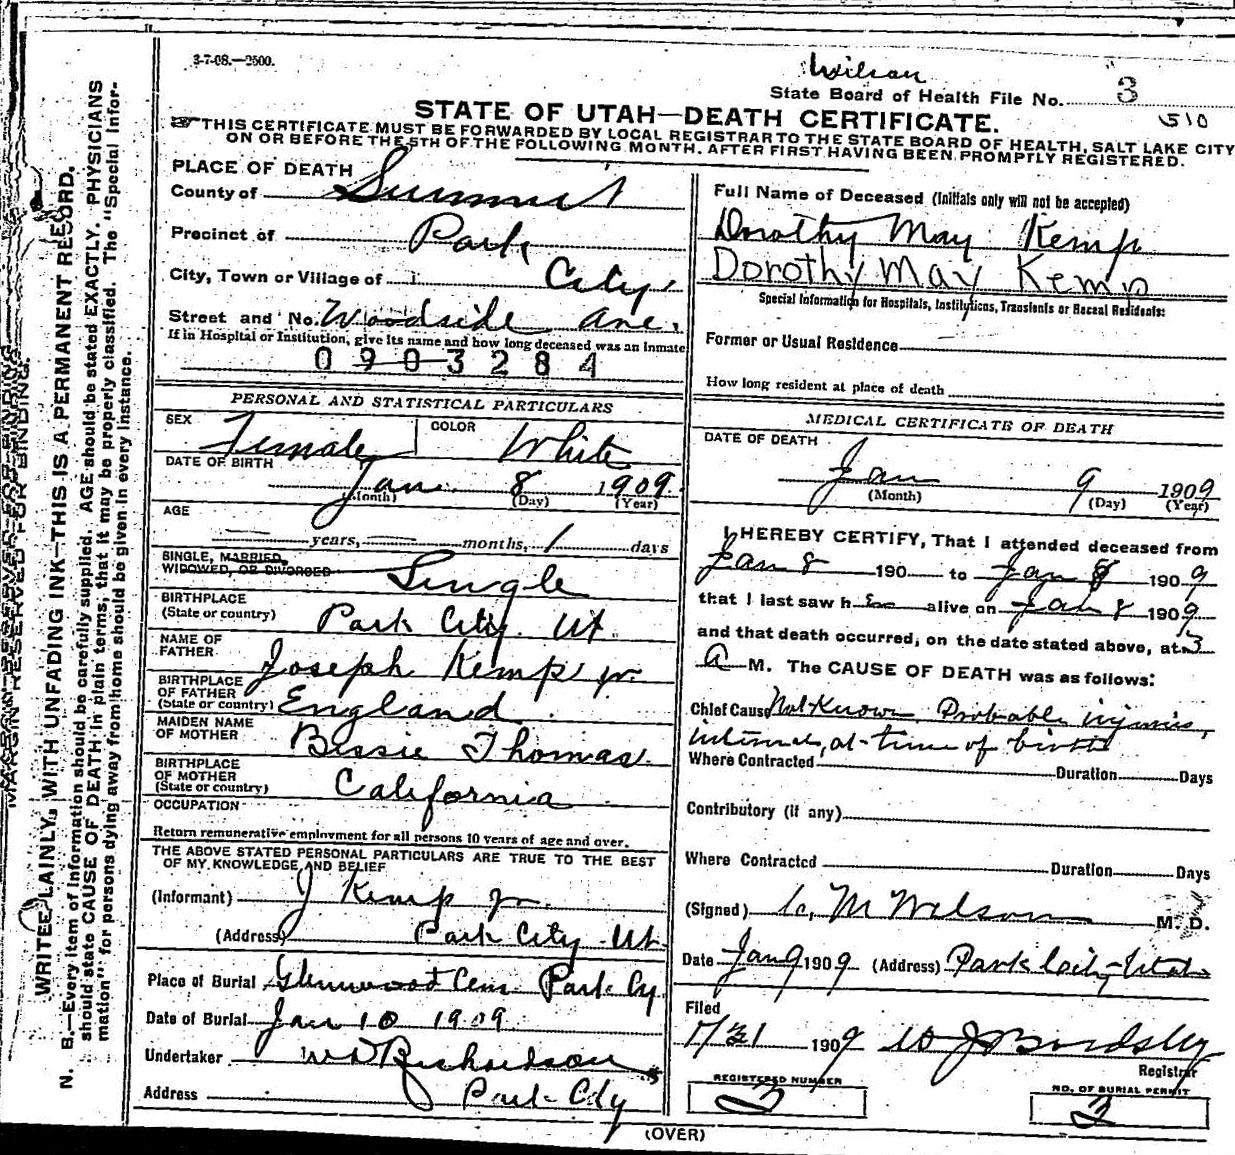 3-7-08.—2500.
Wilson
State Board of Health File No. 3
510
STATE OF UTAH—DEATH CERTIFICATE.
THIS CERTIFICATE MUST BE FORWARDED BY LOCAL REGISTRAR TO THE STATE BOARD OF HEALTH, SALT LAKE CITY
ON OR BEFORE THE 5TH OF THE FOLLOWING MONTH. AFTER FIRST HAVING BEEN PROMPTLY REGISTERED.
PLACE OF DEATH
County of Summit
Precinct of Park
City, Town or Village of City
Street and No. Woodside Ave.
If in Hospital or Institution, give its name and how long deceased was an inmate
0903284
PERSONAL AND STATISTICAL PARTICULARS
SEX Female COLOR White
DATE OF BIRTH
Jan. 8 1909
(Month) (Day) (Year)
AGE
years, months, 1 days
SINGLE, MARRIED,
WIDOWED, OR DIVORCED Single
BIRTHPLACE
(State or country) Park City Ut.
NAME OF
FATHER Joseph Kemp jr.
BIRTHPLACE
OF FATHER
(State or country) England
MAIDEN NAME
OF MOTHER Bessie Thomas
BIRTHPLACE
OF MOTHER
(State or country) California
OCCUPATION
Return remunerative employment for all persons 10 years of age and over.
THE ABOVE STATED PERSONAL PARTICULARS ARE TRUE TO THE BEST
OF MY KNOWLEDGE AND BELIEF
(Informant) J Kemp Jr.
(Address) Park City Ut.
Place of Burial Glenwood Cem Park Cy
Date of Burial Jan 10 1909
Undertaker W D Richardson
Address Park City
Full Name of Deceased (Initials only will not be accepted)
Dorothy May Kemp
Dorothy May Kemp
Special Information for Hospitals, Institutions, Transients or Recent Residents:
Former or Usual Residence
How long resident at place of death
MEDICAL CERTIFICATE OF DEATH
DATE OF DEATH
Jan 9 1909
(Month) (Day) (Year)
I HEREBY CERTIFY, That I attended deceased from
Jan 8 190 to Jan 8 1909
that I last saw h er alive on Jan 8 1909
and that death occurred, on the date stated above, at 3
a M. The CAUSE OF DEATH was as follows:
Chief Cause Not Known Probable injuries,
internal, at time of birth
Where Contracted Duration Days
Contributory (if any)
Where Contracted Duration Days
(Signed) C, M Wilson M. D.
Date Jan 9 1909 (Address) Park City Utah
Filed
1/31 1909 W J Bardsley
Registrar
REGISTERED NUMBER
3
NO. OF BURIAL PERMIT
3
(OVER)
MARGIN RESERVED FOR BINDING.
WRITE PLAINLY, WITH UNFADING INK—THIS IS A PERMANENT RECORD.
N. B.—Every item of information should be carefully supplied. AGE should be stated EXACTLY. PHYSICIANS
should state CAUSE OF DEATH in plain terms, that it may be properly classified. The "Special Infor-
mation" for persons dying away from home should be given in every instance.